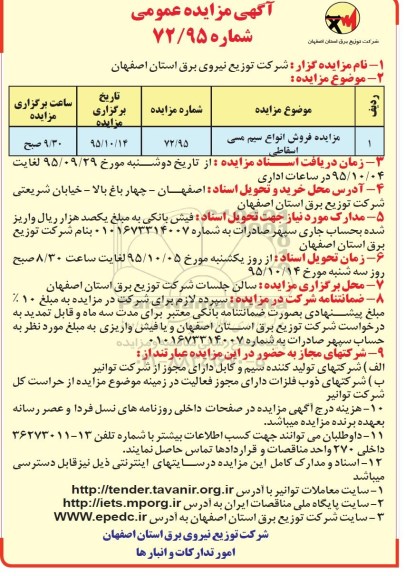 آگهی مزایده عمومی
شماره ۷۲/۹۵
شرکت توزیع برق استان اصفهان
۱- نام مزایده گزار : شرکت توزیع نیروی برق استان اصفهان
۲- موضوع مزایده :
ردیف موضوع مزایده شماره مزایده تاریخ برگزاری مزایده ساعت برگزاری مزایده
۱ مزایده فروش انواع سیم مسی اسقاطی ۷۲/۹۵ ۹۵/۱۰/۱۴ ۹/۳۰ صبح
۳- زمان دریافت اسناد مزایده : از تاریخ دوشنبه مورخ ۹۵/۰۹/۲۹ لغایت
۹۵/۱۰/۰۴ در ساعات اداری
۴- آدرس محل خرید و تحویل اسناد : اصفهان - چهارباغ بالا - خیابان شریعتی
شرکت توزیع برق استان اصفهان
۵- مدارک مورد نیاز جهت تحویل اسناد : فیش بانکی به مبلغ یکصد هزار ریال واریز
شده بحساب جاری سپهر صادرات به شماره ۰۱۰۱۶۷۳۳۱۴۰۰۷ بنام شرکت توزیع
برق استان اصفهان
۶- زمان تحویل اسناد : از روز یکشنبه مورخ ۹۵/۱۰/۰۵ لغایت ساعت ۸/۳۰ صبح
روز سه شنبه مورخ ۹۵/۱۰/۱۴
۷- محل برگزاری مزایده : سالن جلسات شرکت توزیع برق استان اصفهان
۸- ضمانتنامه شرکت در مزایده : سپرده لازم برای شرکت در مزایده به مبلغ ۱۰ ٪
مبلغ پیشنهادی بصورت ضمانتنامه بانکی معتبر برای مدت سه ماه و قابل تمدید به
درخواست شرکت توزیع برق استان اصفهان و یا فیش واریزی به مبلغ مورد نظر به
حساب سپهر صادرات به شماره ۰۱۰۱۶۷۳۳۱۴۰۰۷
۹- شرکتهای مجاز به حضور در این مزایده عبارتند از :
الف ) شرکتهای تولید کننده سیم و کابل دارای مجوز از شرکت توانیر
ب ) شرکتهای ذوب فلزات دارای مجوز فعالیت در زمینه موضوع مزایده از حراست کل
شرکت توانیر
۱۰- هزینه درج آگهی مزایده در صفحات داخلی روزنامه های نسل فردا و عصر رسانه
بعهده برنده مزایده میباشد.
۱۱- داوطلبان می توانند جهت کسب اطلاعات بیشتر با شماره تلفن ۱۳-۳۶۲۷۳۰۱۱
داخلی ۲۷۰ واحد مناقصات و قراردادها تماس حاصل نمایند.
۱۲- اسناد و مدارک کامل این مزایده در سایتهای اینترنتی ذیل نیز قابل دسترسی
میباشد
۱- سایت معاملات توانیر با آدرس http://tender.tavanir.org.ir
۲- سایت پایگاه ملی مناقصات ایران به آدرس http://iets.mporg.ir
۳- سایت شرکت توزیع برق استان اصفهان به آدرس WWW.epedc.ir
شرکت توزیع نیروی برق استان اصفهان
امور تدارکات و انبار ها